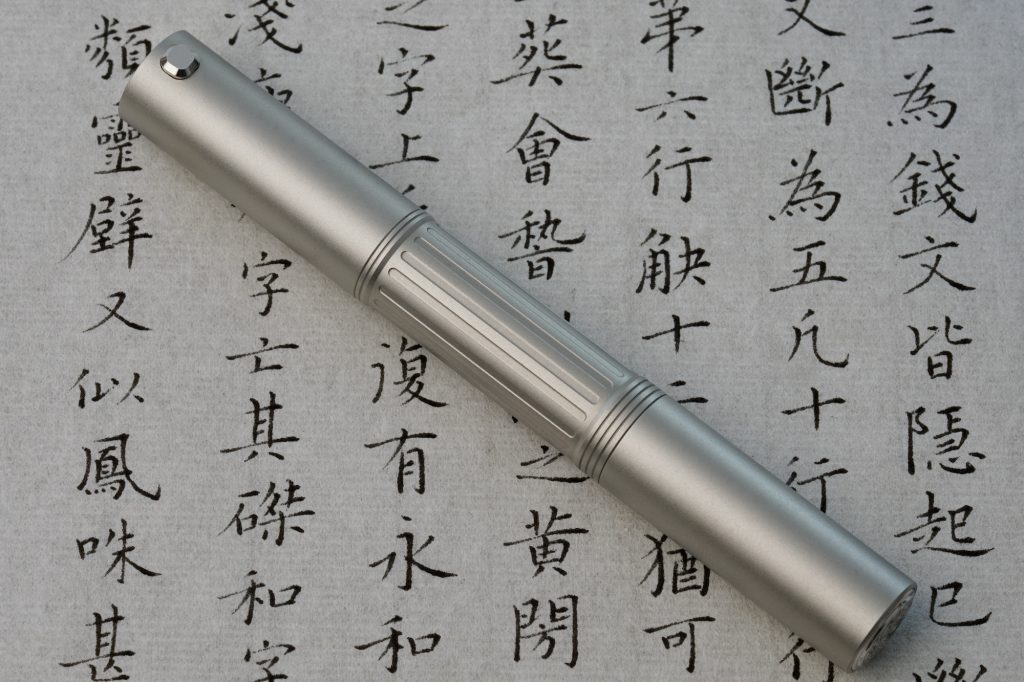 三為錢文皆隱起已
又斷為五凢十行 行
第六行觖十二 猶可
葬會 之黃閍
之字上 復有永和
淺 字亡其磔和字
類靈壁又似鳳咮甚